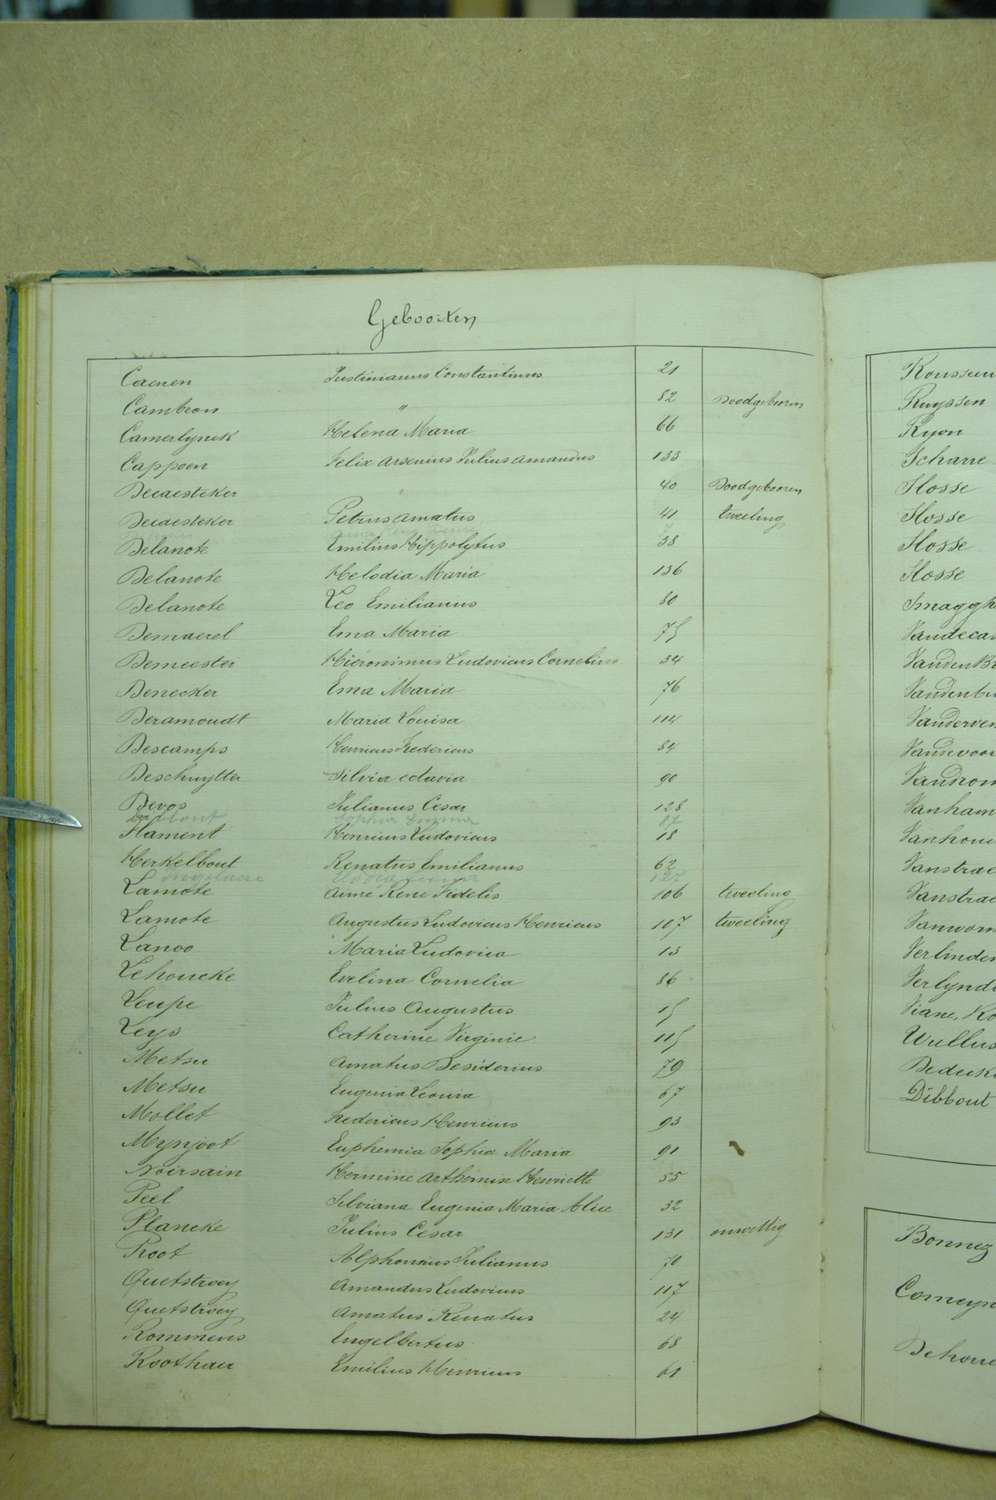 Gebooren
Caenen Justinianus Constantinus 21
Cambron " 82 Doodgebooren
Camerlynck Helena Maria 66
Cappoen Felix Arsenius Julius Amandus 133
Decaesteker " 40 Doodgebooren
Decaesteker Petrus Amatus 41 tweeling
Delanote Emilius Hippolytus 38
Delanote Helodia Maria 136
Delanote Leo Emilianus 80
Demaerel Ema Maria 75
Demeester Hieronimus Ludovicus Cornelius 34
Denecker Ema Maria 76
Deramoudt Maria Louisa 114
Descamps Henricus Fredericus 84
Deschuytter Silvia Octavia 90
Devos Julianus Cesar 128
Flament Henricus Ludovicus 18
Herkelbout Renatus Emilianus 62
Lamote Aimé René Fidelis 106 tweeling
Lamote Augustus Ludovicus Henricus 107 tweeling
Lanoo Maria Ludovica 13
Lehoucke Evelina Cornelia 86
Leupe Julius Augustus 15
Leys Catherine Virginie 115
Metsu Amatus Desiderius 79
Metsu Eugenia Leonia 67
Mollet Fredericus Henricus 93
Mynjoot Euphemia Sophia Maria 91
Noirsain Hermine Arthemise Henriette 55
Peel Silviana Eugenia Maria Alice 32
Plancke Julius Cesar 131 onwettig
Proot Alphonsus Julianus 70
Quetstroey Amandus Ludovicus 117
Quetstroey Amatus Renatus 24
Rommens Engelbertus 68
Roothaer Emilius Henricus 61
Ruyssen
Ryon
Scharre
Slosse
Slosse
Slosse
Slosse
Dibbout
Bonnez